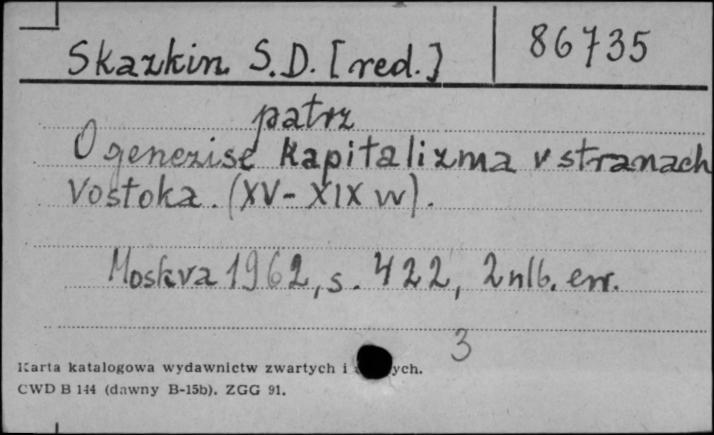 Skazkin S.D. [red.] 86735
patrz
O genezise kapitalizma v stranach
Vostoka. (XV-XIX w).
Moskva 1962, s. 422, 2 nlb. err.
3
Karta katalogowa wydawnictw zwartych i ych.
CWD B 144 (dawny B-15b). ZGG 91.